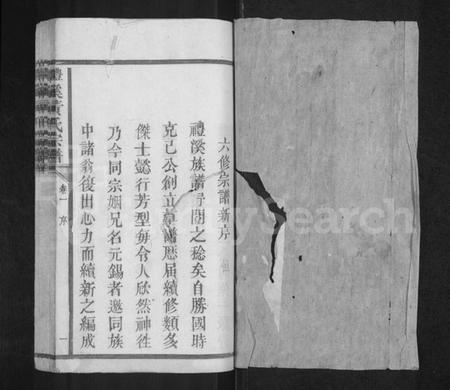 六修宗譜新序
禮溪族譜予閱之稔矣自勝國時
克己公創立草譜歷屆續修類多
傑士懿行芳型每令人欣然神往
乃今同宗嫺兄名元錫者邀同族
中諸翁復出心力而續新之編成
禮溪黃氏宗譜
卷一 序
一
MySearch